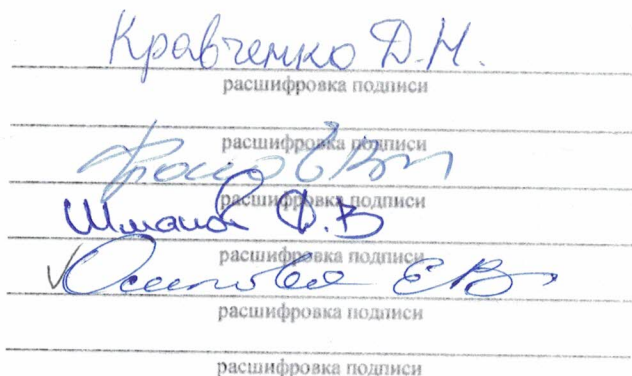 Кравченко Д.Н.
расшифровка подписи
расшифровка подписи
расшифровка подписи
Шманов Ф.В
расшифровка подписи
Осипова Е В
расшифровка подписи
расшифровка подписи